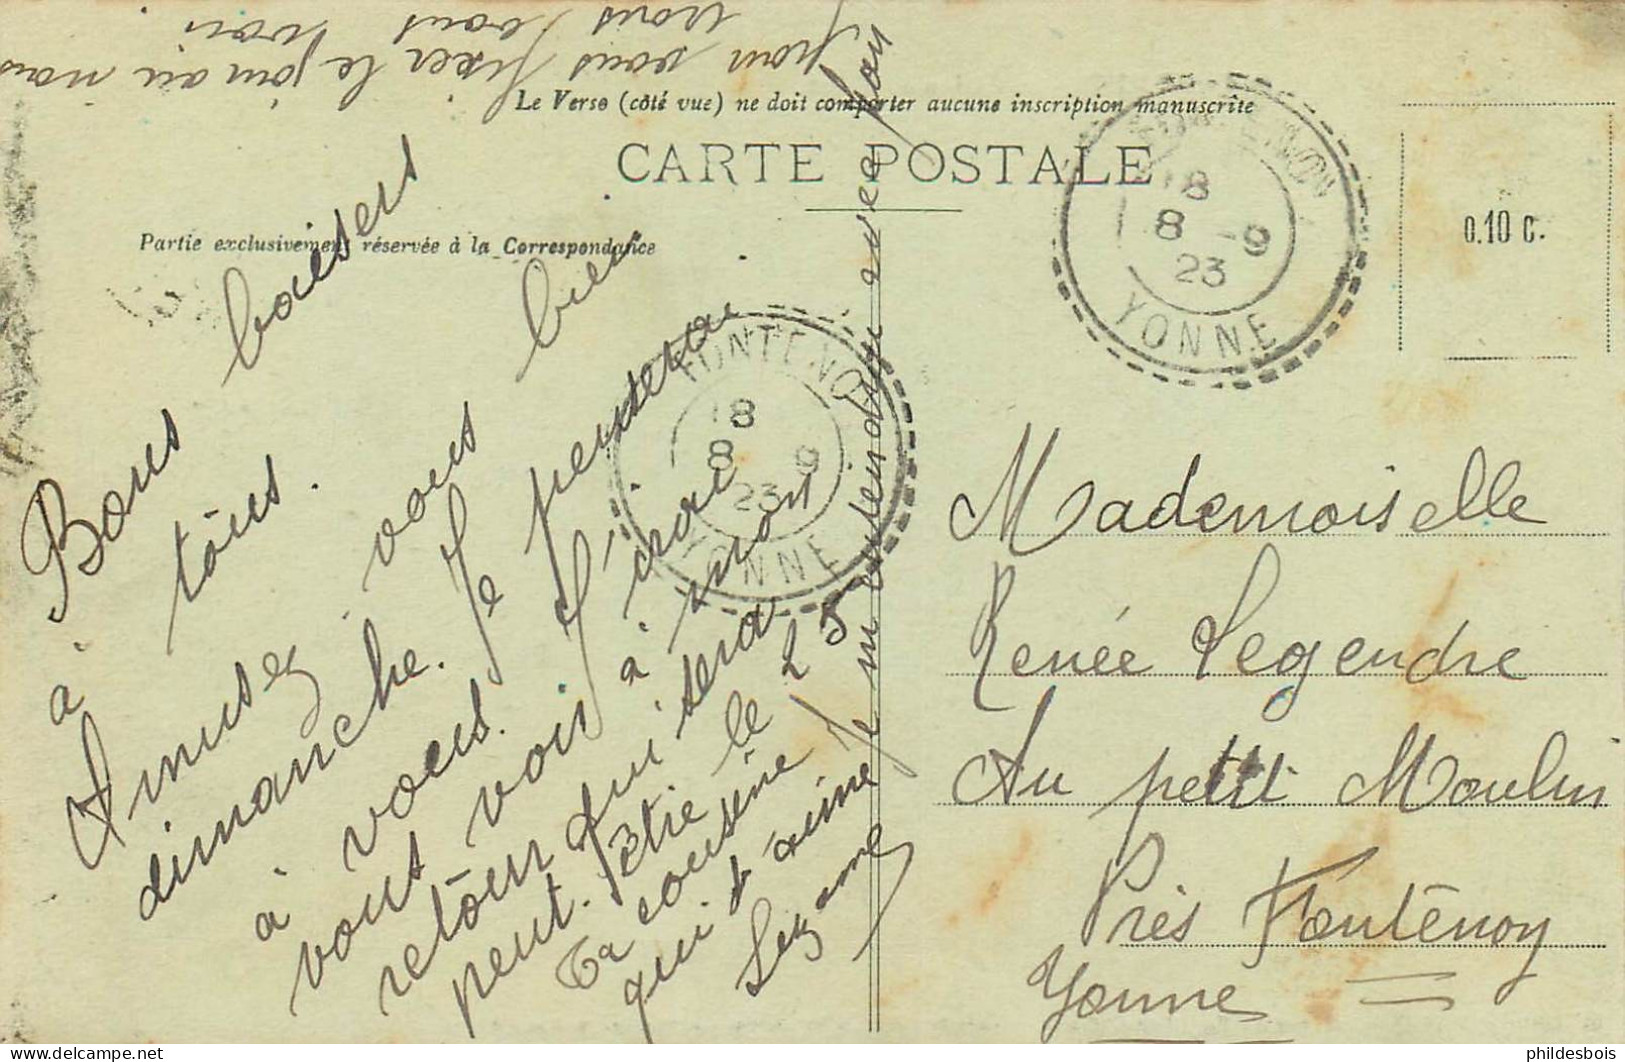 Le Verso (côté vue) ne doit comporter aucune inscription manuscrite
CARTE POSTALE
Partie exclusivement réservée à la Correspondance
0.10 c.
FONTENOY
18
8 -9
23
YONNE
FONTENOY
18
8 9
23
YONNE
Bons baisers
à tous.
Amusez vous bien
dimanche. Je penserai
à vous. J'irai
vous voir à mon
retour qui sera
peut-être le 25
Ta cousine
qui t'aime
Suzanne
Je m'entendrai avec
pour vous fixer le jour où nous
irons vous
voir
Mademoiselle
Renée Legendre
Au petit Moulin
Près Fontenoy
Yonne
phildesbois